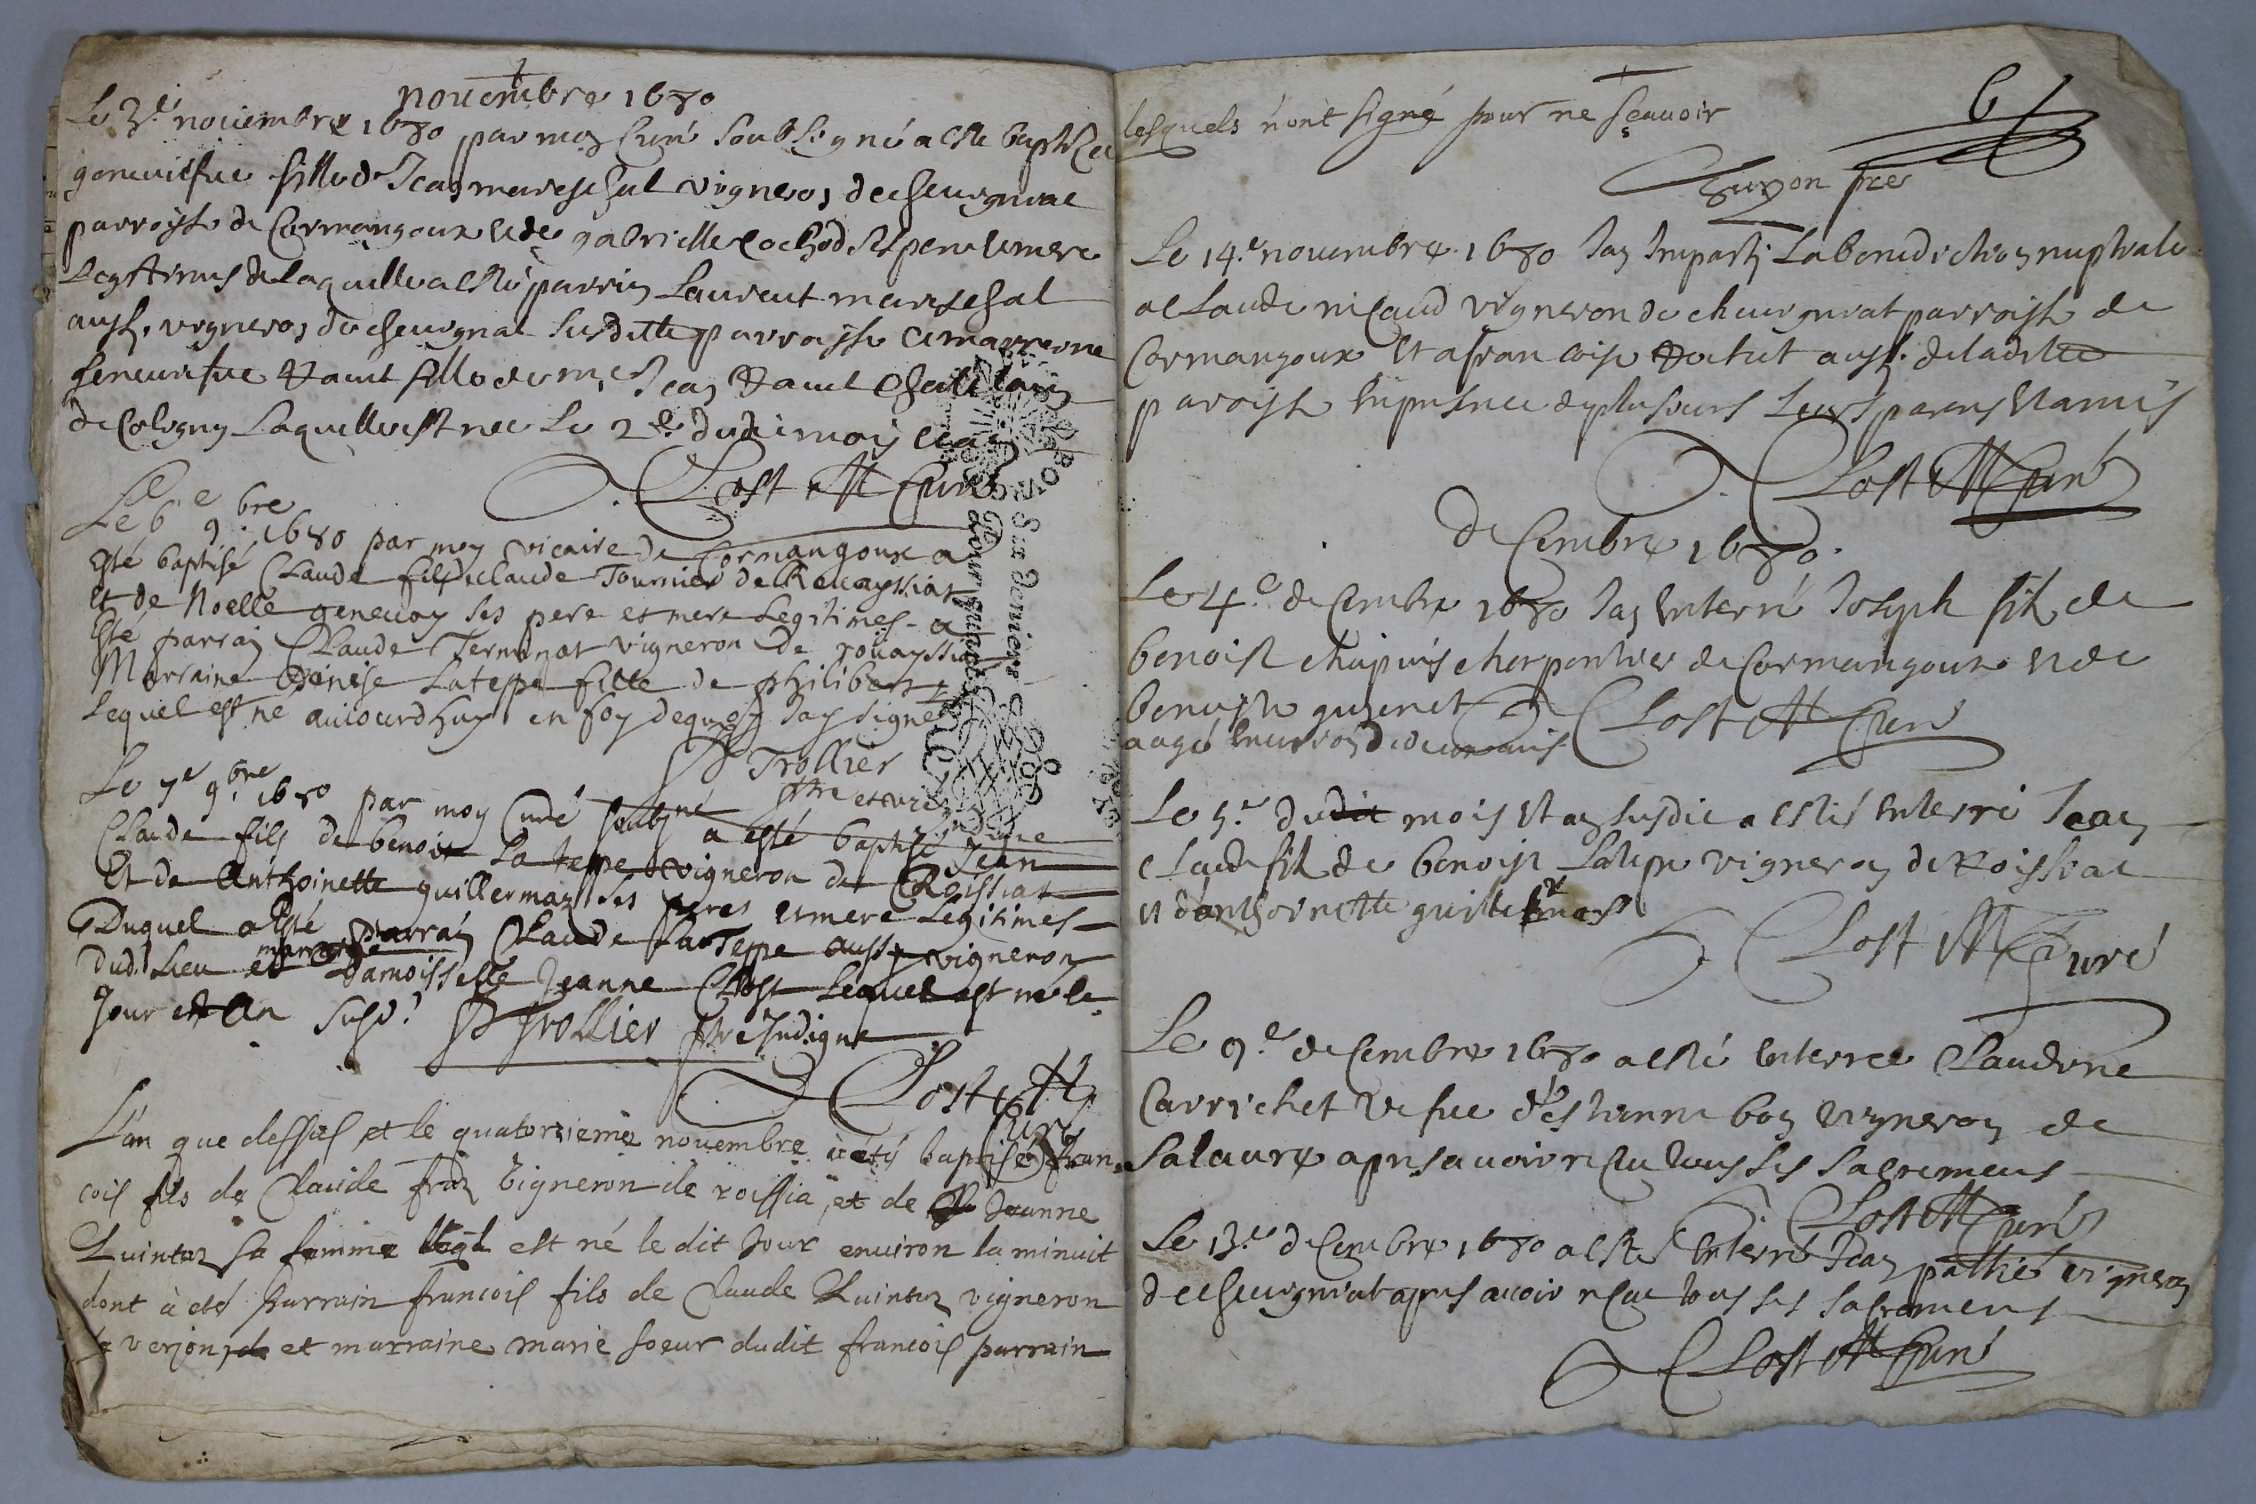 novembre 1680
Le 3e noviembre 1680 par moy Curé Soubsigné a este baptizee
geneviefve fille de Jean mareschal vigneron de cheuignat
parroisse de Cormangoux et de gabrielle ses pere et mere
Legitimes de laquelle a esté parrin Laurent mareschal
aussi vigneron de cheuignat susditte parroisse et marreine
Geneviefve fille de Jean
de Coligny Laquelle est nee le 2e dudit mois et an
Clost Curé
Le 6e 9bre 1680 par moy vicaire de Cormangoux a
Esté baptisé Claude fils de claude Tournier de Roüayssiat
Et de Noelle genevoy ses pere et mere Legitimes a
Esté parrain Claude vigneron de roüayssia
Marraine Denise Lateppe fille de philibert
Lequel est né auiourdhuy en foy dequoy J'ay signé
Trollier
ptre et vre indigne
Le 7e 9bre 1680 par moy Curé soubsné a esté baptisé Jean
Claude fils de benoit La teppe vigneron de Roissiat
Et de Anthoinette guillermaz ses peres et mere Legitimes
Duquel a Esté parrain Claude La Teppe aussy vigneron
dud. Lieu et marraine damoisselle Jeanne Clost Lequel est né le
Jour et An susd.
Trollier ptre Indigne
Clost Curé
L'an que dessus et le quatorzieme novembre à été baptisé Fran-
cois fils de Claude vigneron de roissia, et de Jeanne
Quintin sa femme est né le dit Jour environ la minuit
dont à eté parrain francois fils de Claude Quintin vigneron
de verjon, et marraine marie soeur dudit francois parrain
lesquels n'ont signé pour ne sçauoir
6
Guyon pre
Le 14e novembre 1680 Jay Imparti La benediction nuptiale
a Claude nicaud vigneron de cheuignat parroisse de
Cormangoux et a francoise aussi de laditte
paroisse en presence de plusieurs Leurs parens et amis
Clost Curé
decembre 1680
Le 4e decembre 1680 Jay enterré Joseph fils de
benoist chapuis charpentier de Cormangoux et de
benoiste
aagé environ de deux mois
Clost Curé
Le 5e dudit mois et an susdit a esté enterré Jean
Claude fils de benoist Lateppe vigneron de Roissiat
et d'anthoinette guillermas
Clost Curé
Le 9e decembre 1680 a esté enterree Claudine
Carrichet vefve d'estienne bon vigneron de
Salavre apres avoir receu tous ses sacremens
Clost Curé
Le 13e decembre 1680 a esté enterré Jean pathié vigneron
de cheuignat apres avoir receu tous ses sacremens
Clost Curé